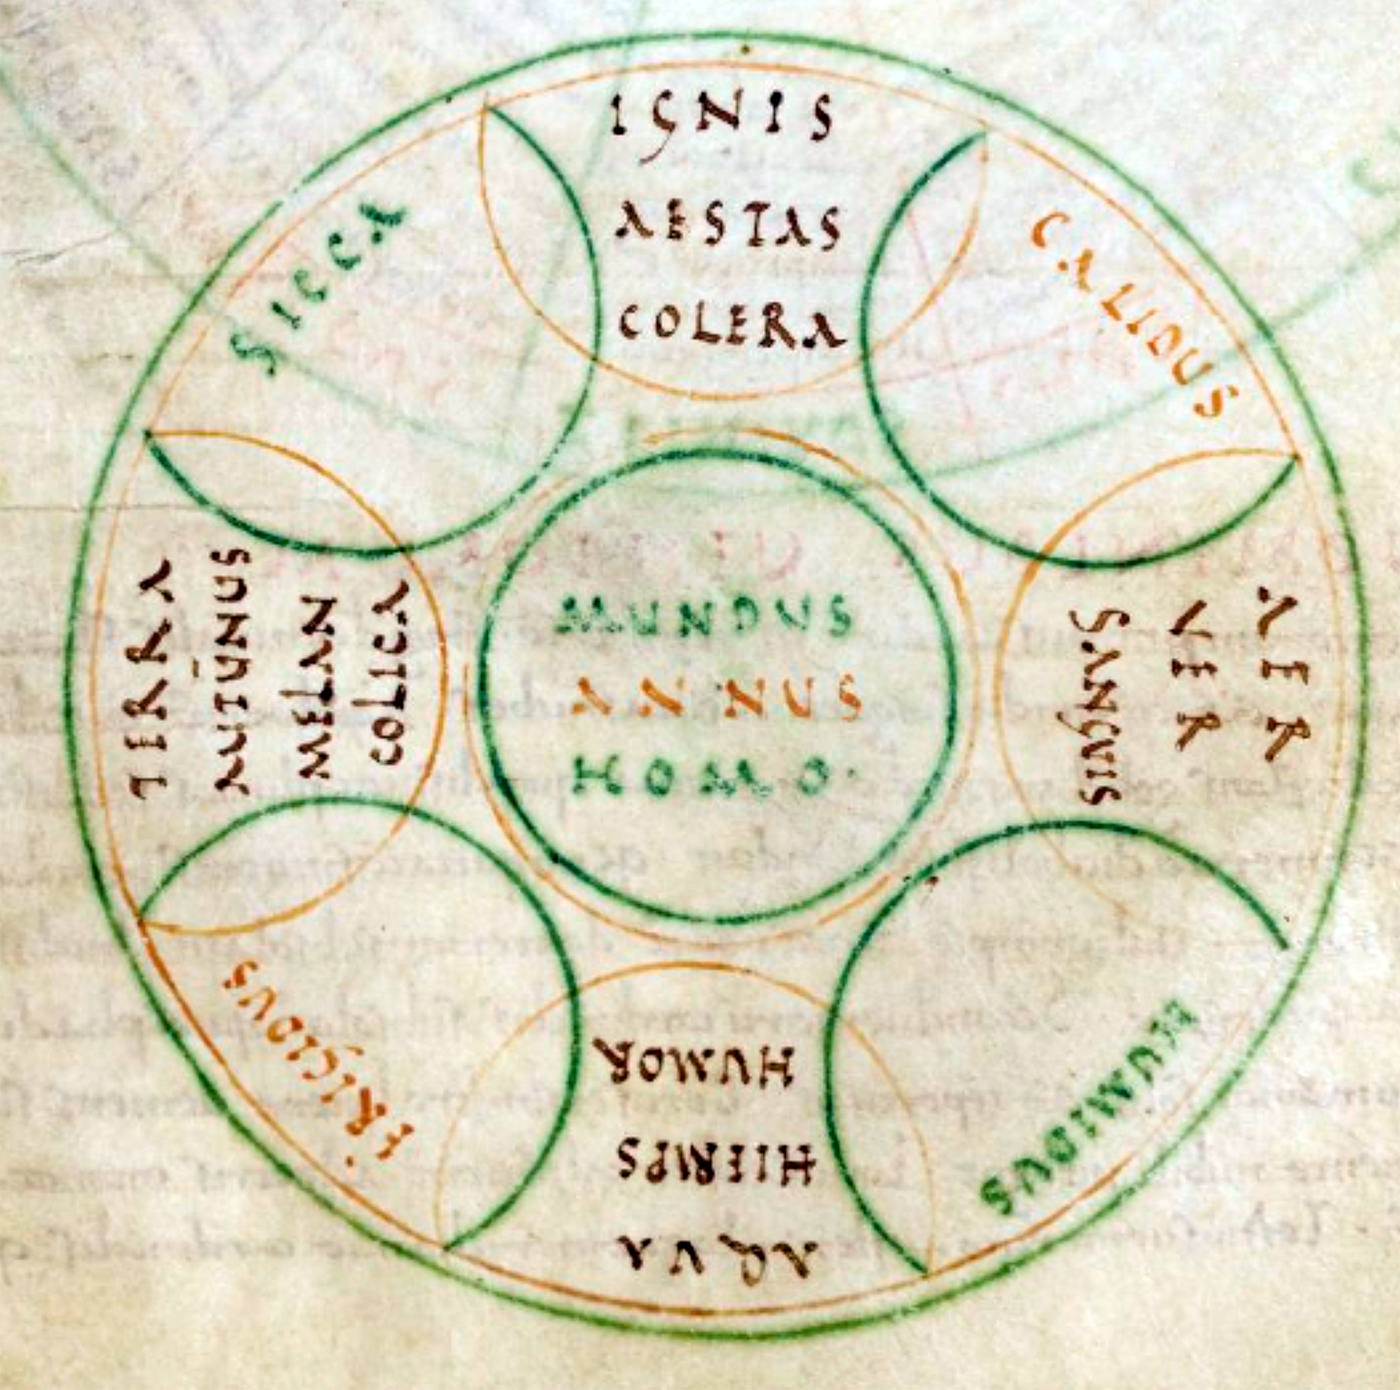 IGNIS
AESTAS
COLERA
CALIDUS
AER
VER
SANGUIS
HUMIDUS
AQVA
HIEMPS
HUMOR
FRIGIDUS
TERRA
AUTŪNUS
MELAN
COLICA
SICCA
MUNDUS
ANNUS
HOMO